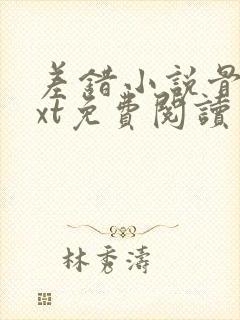 差錯小説骨
xt免費閱讀
林秀濤